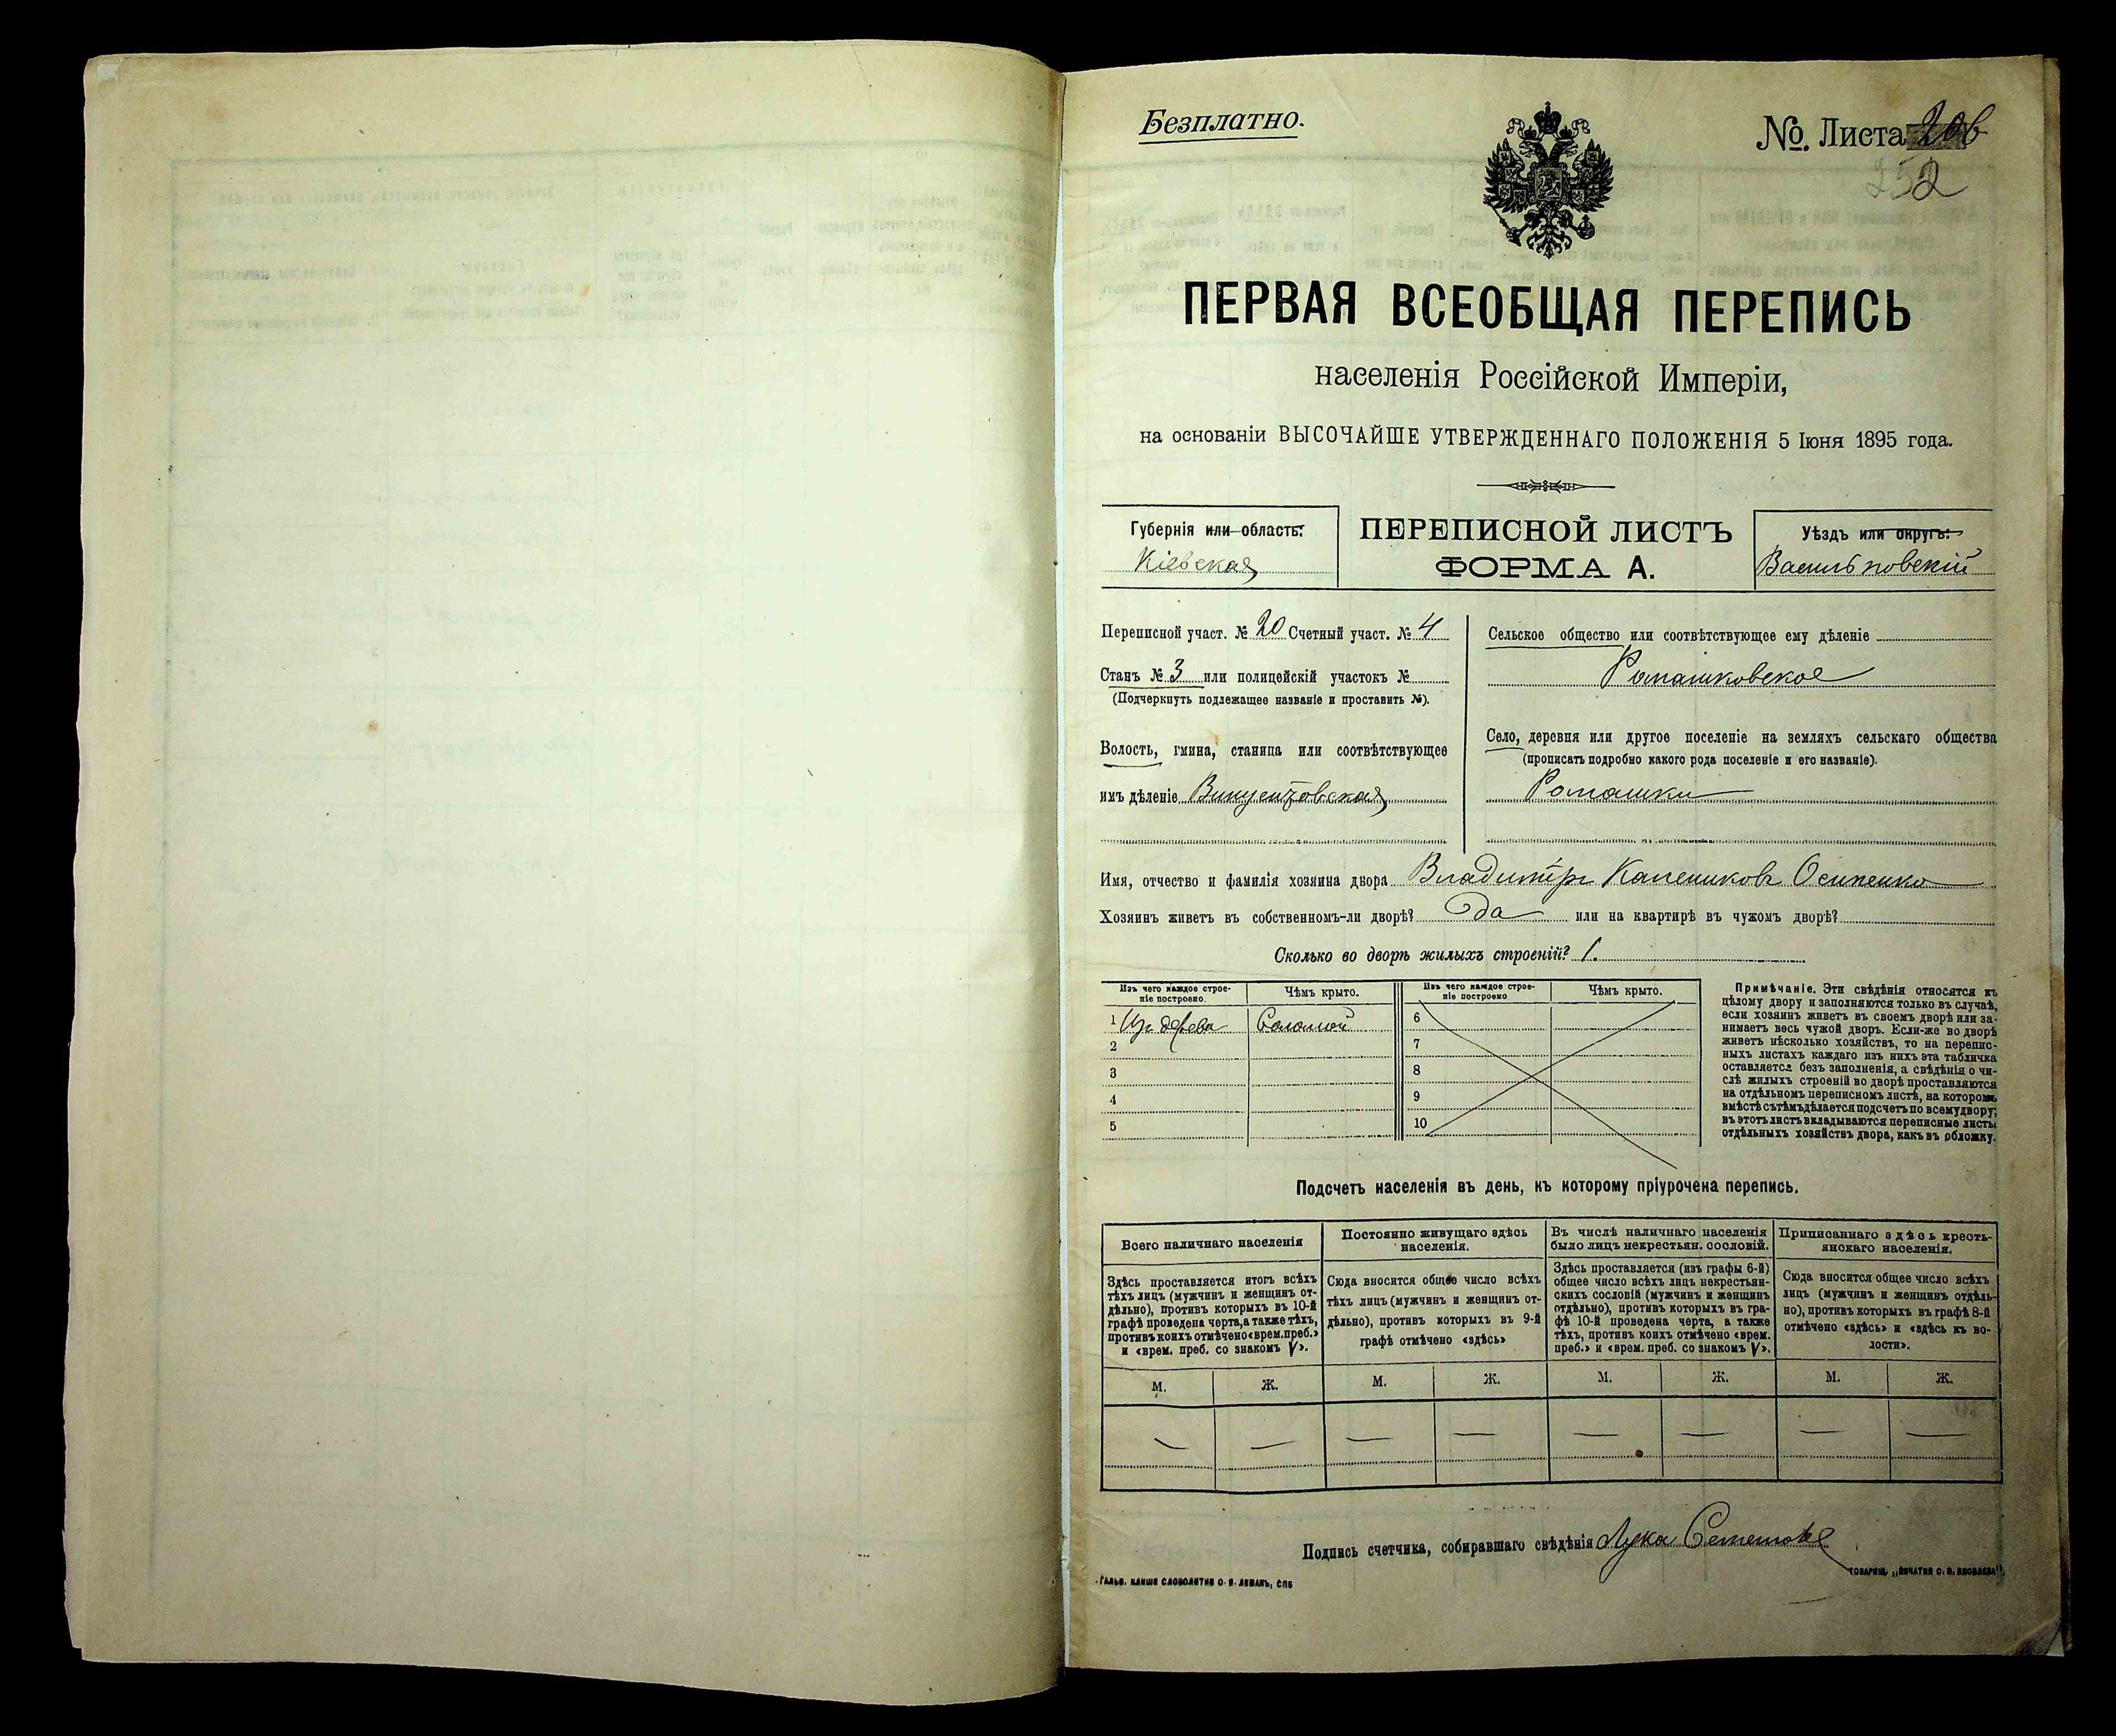 Безплатно.
№. Листа 206
252
ПЕРВАЯ ВСЕОБЩАЯ ПЕРЕПИСЬ
населенія Россійской Имперіи,
на основаніи ВЫСОЧАЙШЕ УТВЕРЖДЕННАГО ПОЛОЖЕНІЯ 5 Іюня 1895 года.
Губернія или область:
Кіевская
ПЕРЕПИСНОЙ ЛИСТЪ
ФОРМА А.
Уѣздъ или округъ:
Васильковскій
Переписной участ. № 20 Счетный участ. № 4
Станъ № 3 или полицейскій участокъ №
(Подчеркнуть подлежащее названіе и проставить №).
Волость, гмина, станица или соотвѣтствующее
имъ дѣленіе Винцентовская
Сельское общество или соотвѣтствующее ему дѣленіе
Ромашковское
Село, деревня или другое поселеніе на земляхъ сельскаго общества
(прописать подробно какого рода поселеніе и его названіе).
Ромашки
Имя, отчество и фамилія хозяина двора Владиміръ Осипенко
Хозяинъ живетъ въ собственномъ-ли дворѣ? да или на квартирѣ въ чужомъ дворѣ?
Сколько во дворѣ жилыхъ строеній? 1.
Изъ чего каждое строе-
ніе построено.
Чѣмъ крыто.
Изъ чего каждое строе-
ніе построено
Чѣмъ крыто.
1 Изъ дерева Соломой
2
3
4
5
6
7
8
9
10
Примѣчаніе. Эти свѣдѣнія относятся къ
цѣлому двору и заполняются только въ случаѣ,
если хозяинъ живетъ въ своемъ дворѣ или за-
нимаетъ весь чужой дворъ. Если-же во дворѣ
живетъ нѣсколько хозяйствъ, то на перепис-
ныхъ листахъ каждаго изъ нихъ эта табличка
оставляется безъ заполненія, а свѣдѣнія о чи-
слѣ жилыхъ строеній во дворѣ проставляются
на отдѣльномъ переписномъ листѣ, на которомъ
вмѣстѣ съ тѣмъ дѣлается подсчетъ по всему двору;
въ этотъ листъ вкладываются переписные листы
отдѣльныхъ хозяйствъ двора, какъ въ обложку.
Подсчетъ населенія въ день, къ которому пріурочена перепись.
Всего наличнаго населенія
Здѣсь проставляется итогъ всѣхъ
тѣхъ лицъ (мужчинъ и женщинъ от-
дѣльно), противъ которыхъ въ 10-й
графѣ проведена черта, а также тѣхъ,
противъ коихъ отмѣчено «врем. преб.»
и «врем. преб. со знакомъ V».
Постоянно живущаго здѣсь
населенія.
Сюда вносится общее число всѣхъ
тѣхъ лицъ (мужчинъ и женщинъ от-
дѣльно), противъ которыхъ въ 9-й
графѣ отмѣчено «здѣсь»
Въ числѣ наличнаго населенія
было лицъ некрестьян. сословій.
Здѣсь проставляется (изъ графы 6-й)
общее число всѣхъ лицъ некрестьян-
скихъ сословій (мужчинъ и женщинъ
отдѣльно), противъ которыхъ въ гра-
фѣ 10-й проведена черта, а также
тѣхъ, противъ коихъ отмѣчено «врем.
преб.» и «врем. преб. со знакомъ V».
Приписаннаго здѣсь кресть-
янскаго населенія.
Сюда вносится общее число всѣхъ
лицъ (мужчинъ и женщинъ отдѣль-
но), противъ которыхъ въ графѣ 8-й
отмѣчено «здѣсь» и «здѣсь къ во-
лости».
М. Ж. М. Ж. М. Ж. М. Ж.
— — — — — — — —
Подпись счетчика, собиравшаго свѣдѣнія Лука
ГАЛЬВ. КЛИШЕ СЛОВОЛИТНИ О. И. ЛЕМАНЪ, СПБ
ТОВАРИЩ. „ПЕЧАТНЯ С. П. ЯКОВЛЕВА".